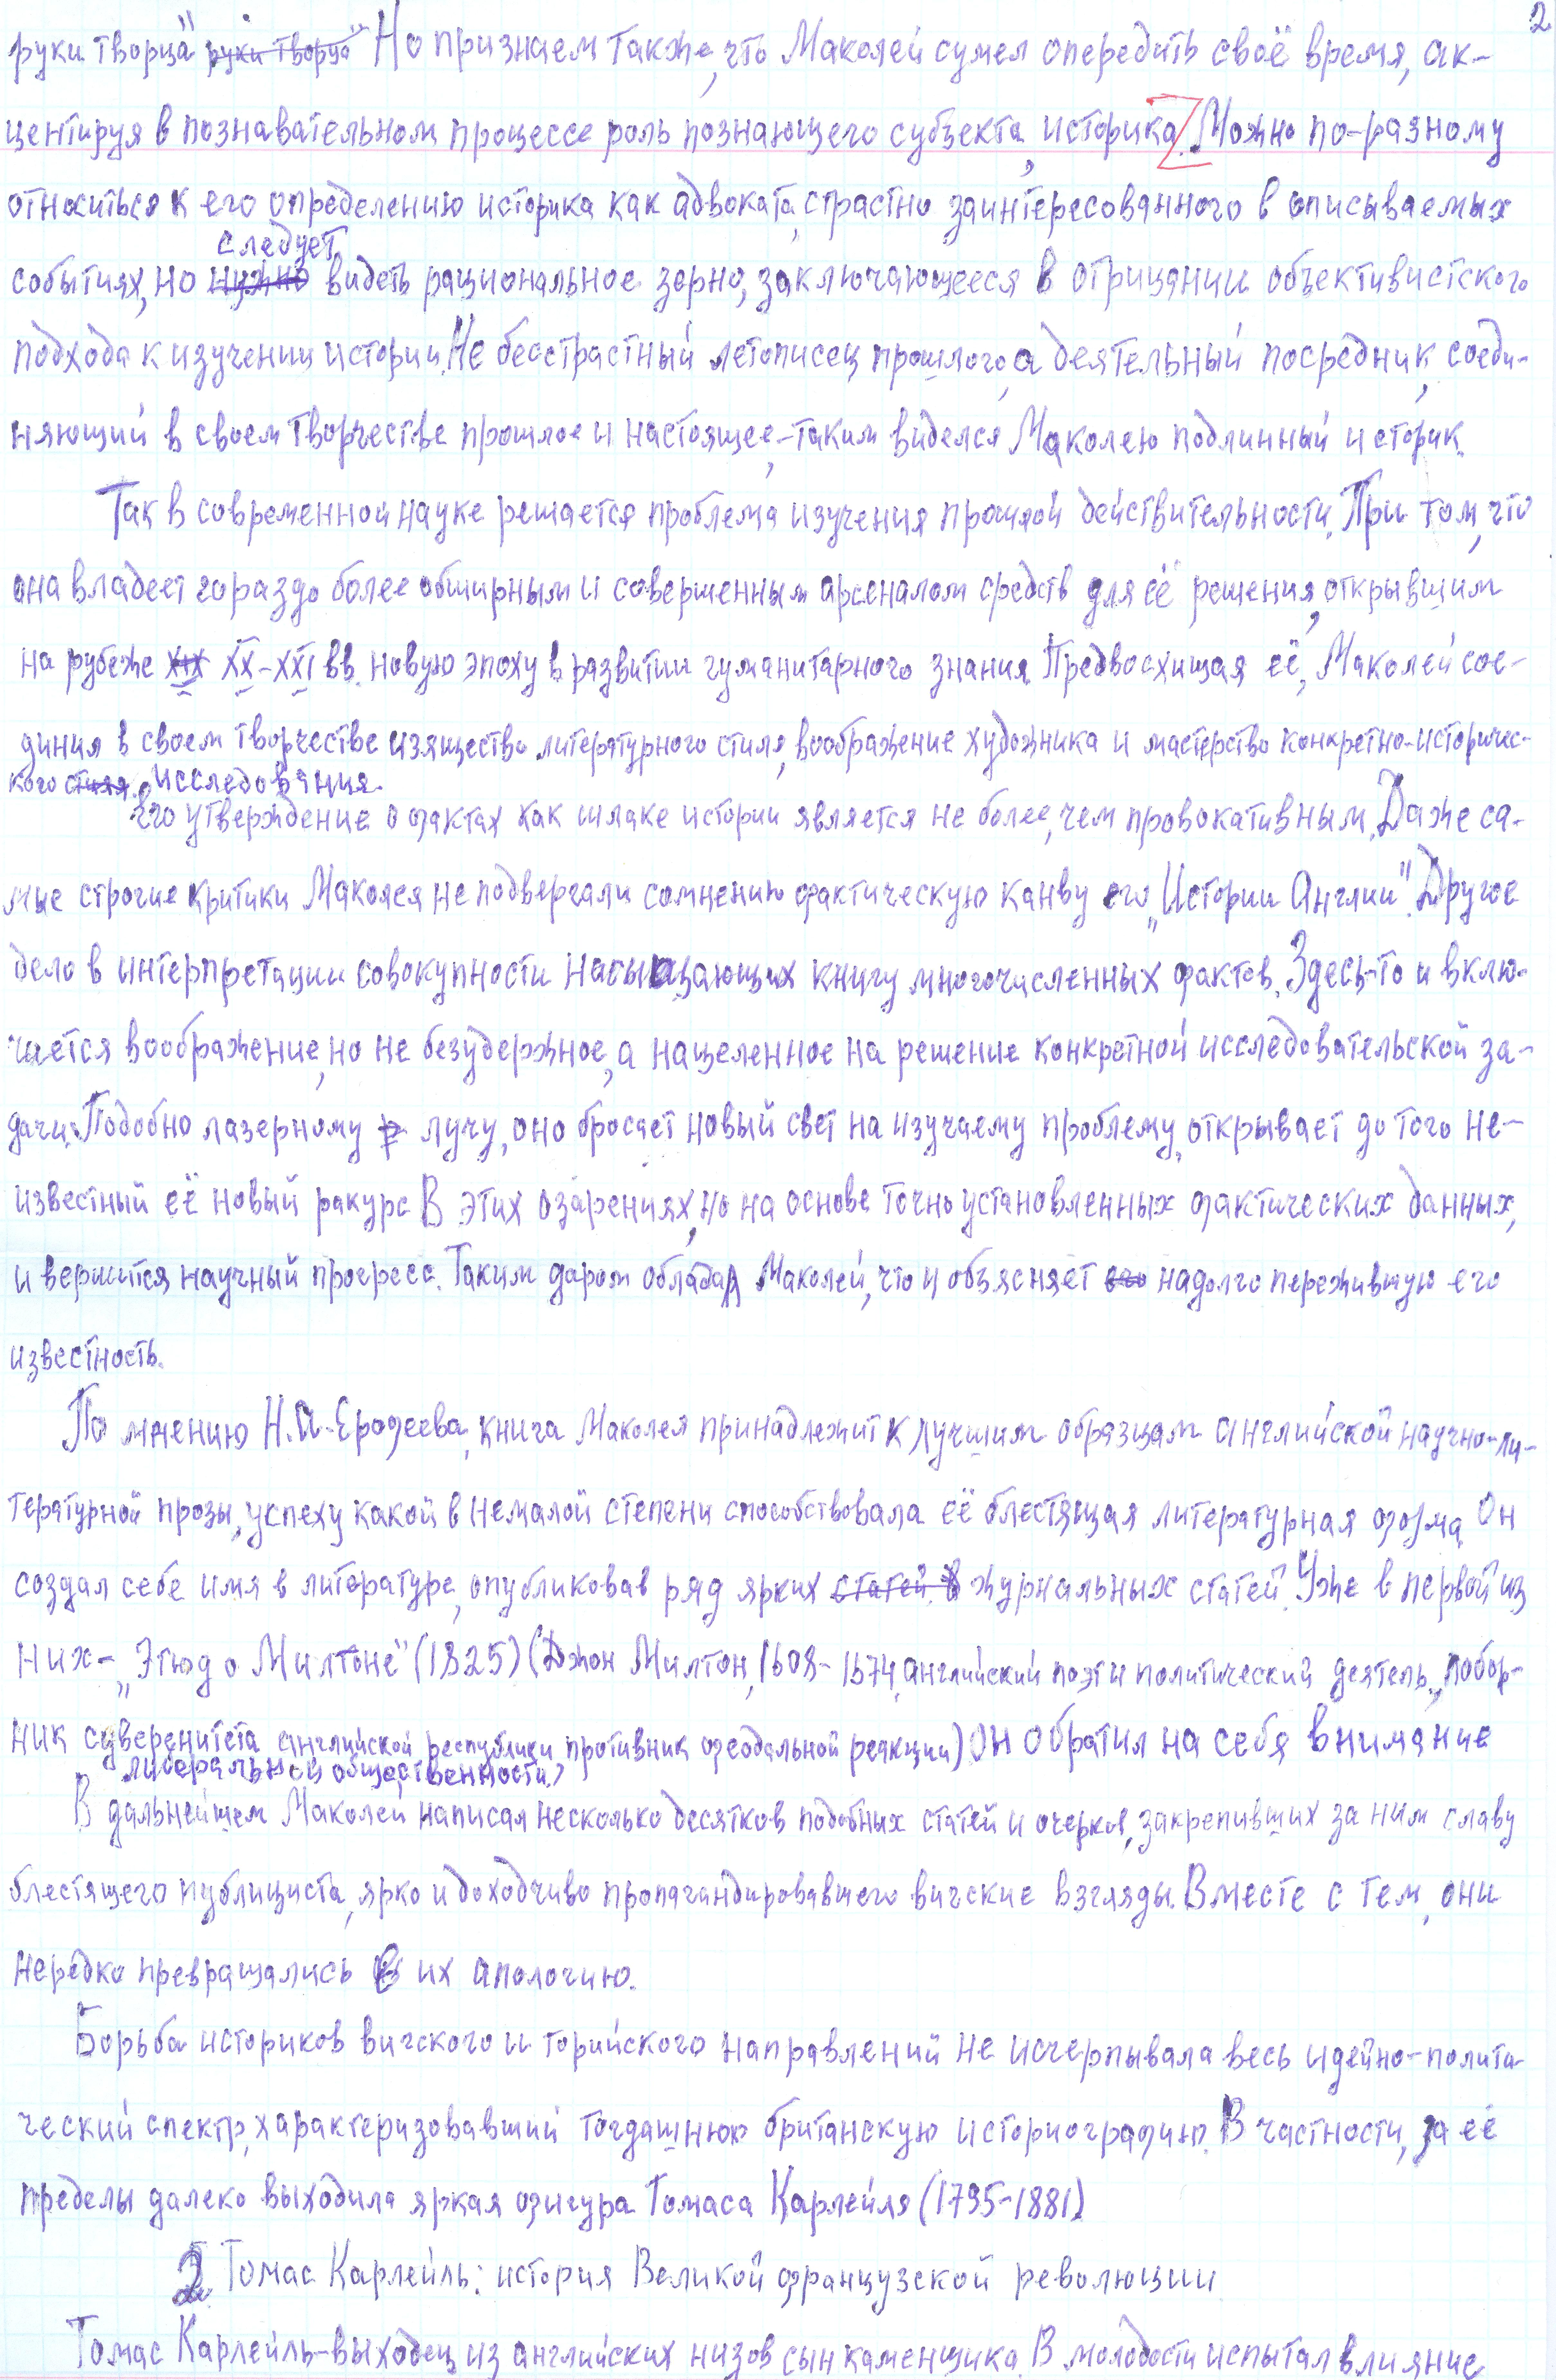 2
руки творца" руки творца" Но признаем также, что Маколей сумел опередить своё время, ак-
центируя в познавательном процессе роль познающего субъекта, историка. Можно по-разному
относиться к его определению историка как адвоката, страстно заинтересованного в описываемых
следует
событиях, но нужно видеть рациональное зерно, заключающееся в отрицании объективистского
подхода к изучении истории. Не бесстрастный летописец прошлого, а деятельный посредник, соеди-
няющий в своем творчестве прошлое и настоящее, -таким виделся Маколею подлинный историк.
Так в современной науке решается проблема изучения прошлой действительности. При том, что
она владеет гораздо более обширным и совершенным арсеналом средств для её решения, открывшим
на рубеже XIX XX-XXI вв. новую эпоху в развитии гуманитарного знания. Предвосхищая её, Маколей сое-
динил в своем творчестве изящество литературного стиля, воображение художника и мастерство конкретно-историчес-
кого стиля. исследования.
Его утверждение о фактах как шлаке истории является не более, чем провокативным. Даже са-
мые строгие критики Маколея не подвергали сомнению фактическую канву его „Истории Англии". Другое
дело в интерпретации совокупности насыщающих книгу многочисленных фактов. Здесь-то и вклю-
чается воображение, но не безудержное, а нацеленное на решение конкретной исследовательской за-
дачи. Подобно лазерному р лучу, оно бросает новый свет на изучаему проблему, открывает до того не-
известный её новый ракурс В этих озарениях, но на основе точно установленных фактических данных,
и вершится научный прогресс. Таким даром обладал Маколей, что и объясняет его надолго пережившую его
известность.
По мнению Н.А. Ерофеева, книга Маколея принадлежит к лучшим образцам английской научно-ли-
тературной прозы, успеху какой в немалой степени способствовала её блестящая литературная форма. Он
создал себе имя в литературе, опубликовав ряд ярких статей. В журнальных статей. Уже в первой из
них- „Этюд о Милтоне" (1825) (Джон Милтон, 1608-1674, английский поэт и политический деятель, побор-
ник суверенитета английской республики, противник феодальной реакции) он обратил на себя внимание
либеральной общественности.
В дальнейшем Маколей написал несколько десятков подобных статей и очерков, закрепивших за ним славу
блестящего публициста, ярко и доходчиво пропагандировавшего вигские взгляды. Вместе с тем, они
нередко превращались в их апологию.
Борьба историков вигского и торийского направлений не исчерпывала весь идейно-полити-
ческий спектр, характеризовавший тогдашнюю британскую историографию. В частности, за её
пределы далеко выходила яркая фигура Томаса Карлейля (1795-1881)
2. Томас Карлейль: история Великой французской революции
Томас Карлейль-выходец из английских низов, сын каменщика. В молодости испытал влияние